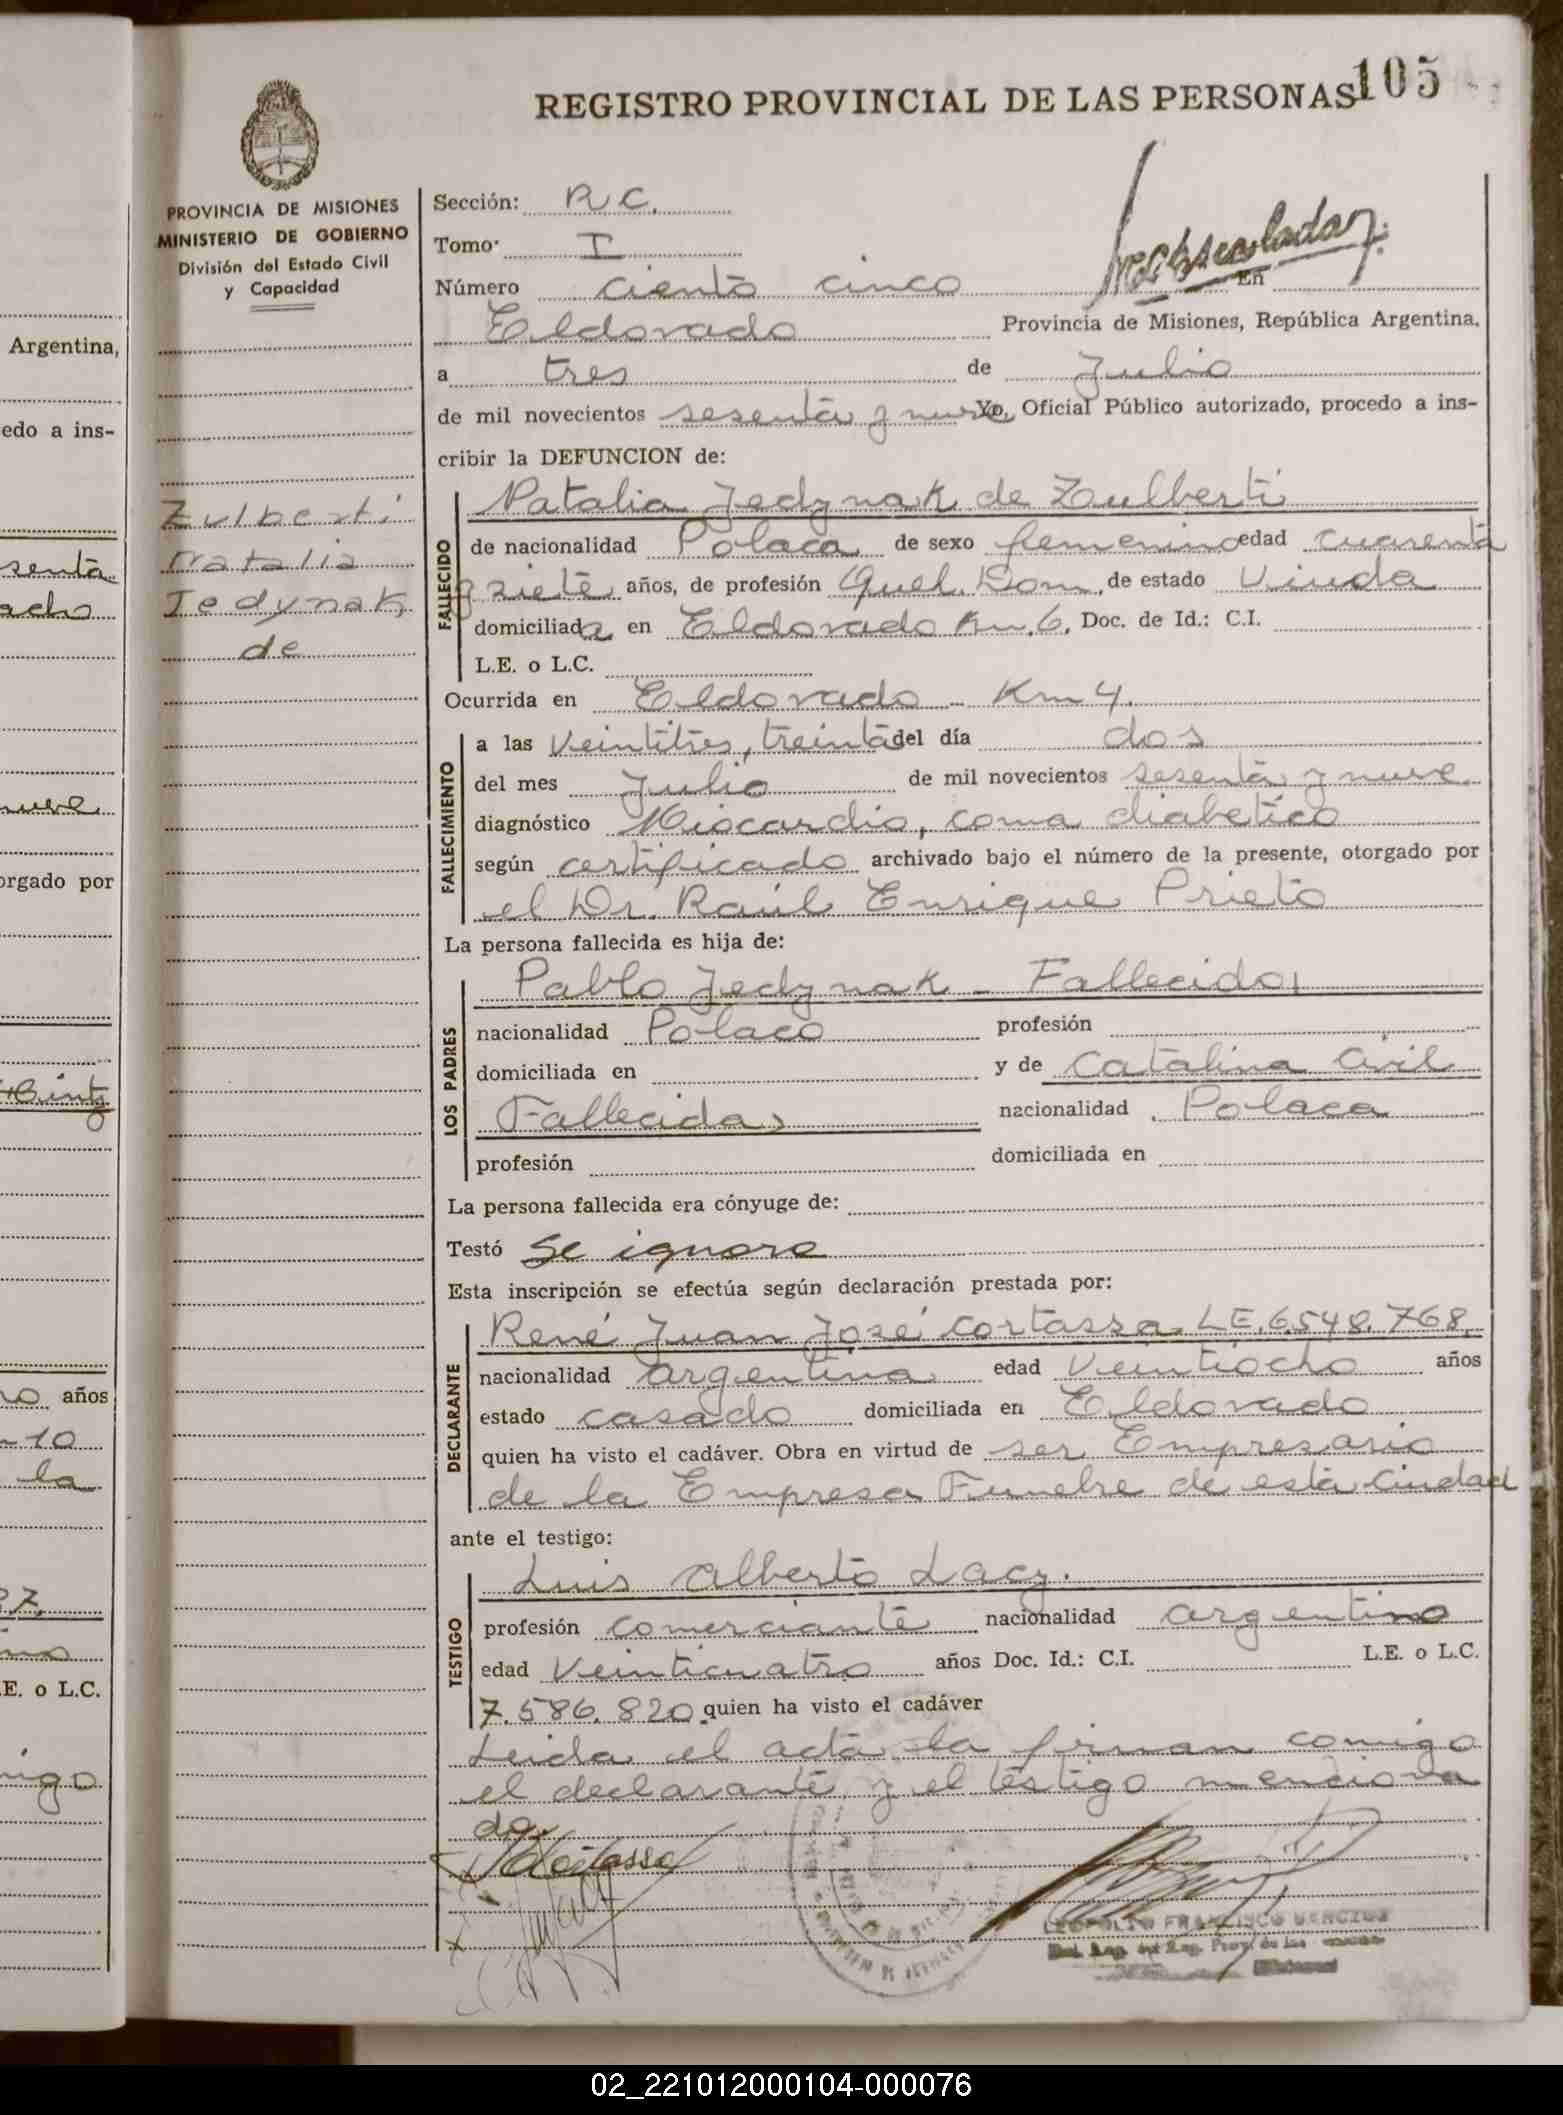 REGISTRO PROVINCIAL DE LAS PERSONAS 105
PROVINCIA DE MISIONES
MINISTERIO DE GOBIERNO
División del Estado Civil
y Capacidad
Zulberti
Natalia
Jedynak
de
Sección: R C.
Tomo I
Número ciento cinco En
Eldorado Provincia de Misiones, República Argentina,
a tres de Julio
de mil novecientos sesenta y nueve Yo, Oficial Público autorizado, procedo a ins-
cribir la DEFUNCION de:
FALLECIDO
Natalia Jedynak de Zulberti
de nacionalidad Polaca de sexo femenino edad cuarenta
y siete años, de profesión Quel. Dom. de estado Viuda
domiciliada en Eldorado Km. 6. Doc. de Id.: C.I.
L.E. o L.C.
Ocurrida en Eldorado - Km 4.
FALLECIMIENTO
a las Veintitres, treinta del día dos
del mes Julio de mil novecientos sesenta y nueve
diagnóstico Miocardio, coma diabetico
según certificado archivado bajo el número de la presente, otorgado por
el Dr. Raúl Enrique Prieto
La persona fallecida es hija de:
LOS PADRES
Pablo Jedynak - Fallecido
nacionalidad Polaco profesión
domiciliada en y de Catalina
Fallecida nacionalidad Polaca
profesión domiciliada en
La persona fallecida era cónyuge de:
Testó Se ignora
Esta inscripción se efectúa según declaración prestada por:
DECLARANTE
René Juan José Cortassa LE. 6.548.768.
nacionalidad argentina edad Veintiocho años
estado casado domiciliada en Eldorado
quien ha visto el cadáver. Obra en virtud de ser Empresario
de la Empresa Funebre de esta Ciudad
ante el testigo:
TESTIGO
Luis Alberto Lacy.
profesión comerciante nacionalidad argentino
edad Veinticuatro años Doc. Id.: C.I. L.E. o L.C.
7.586.820 quien ha visto el cadáver
Leida el acta la firman comigo
el declarante y el testigo menciona
do.
LEOPOLDO FRANCISCO
Argentina,
edo a ins-
senta
acho
nueve
orgado por
años
-10
la
E. o L.C.
02_221012000104-000076